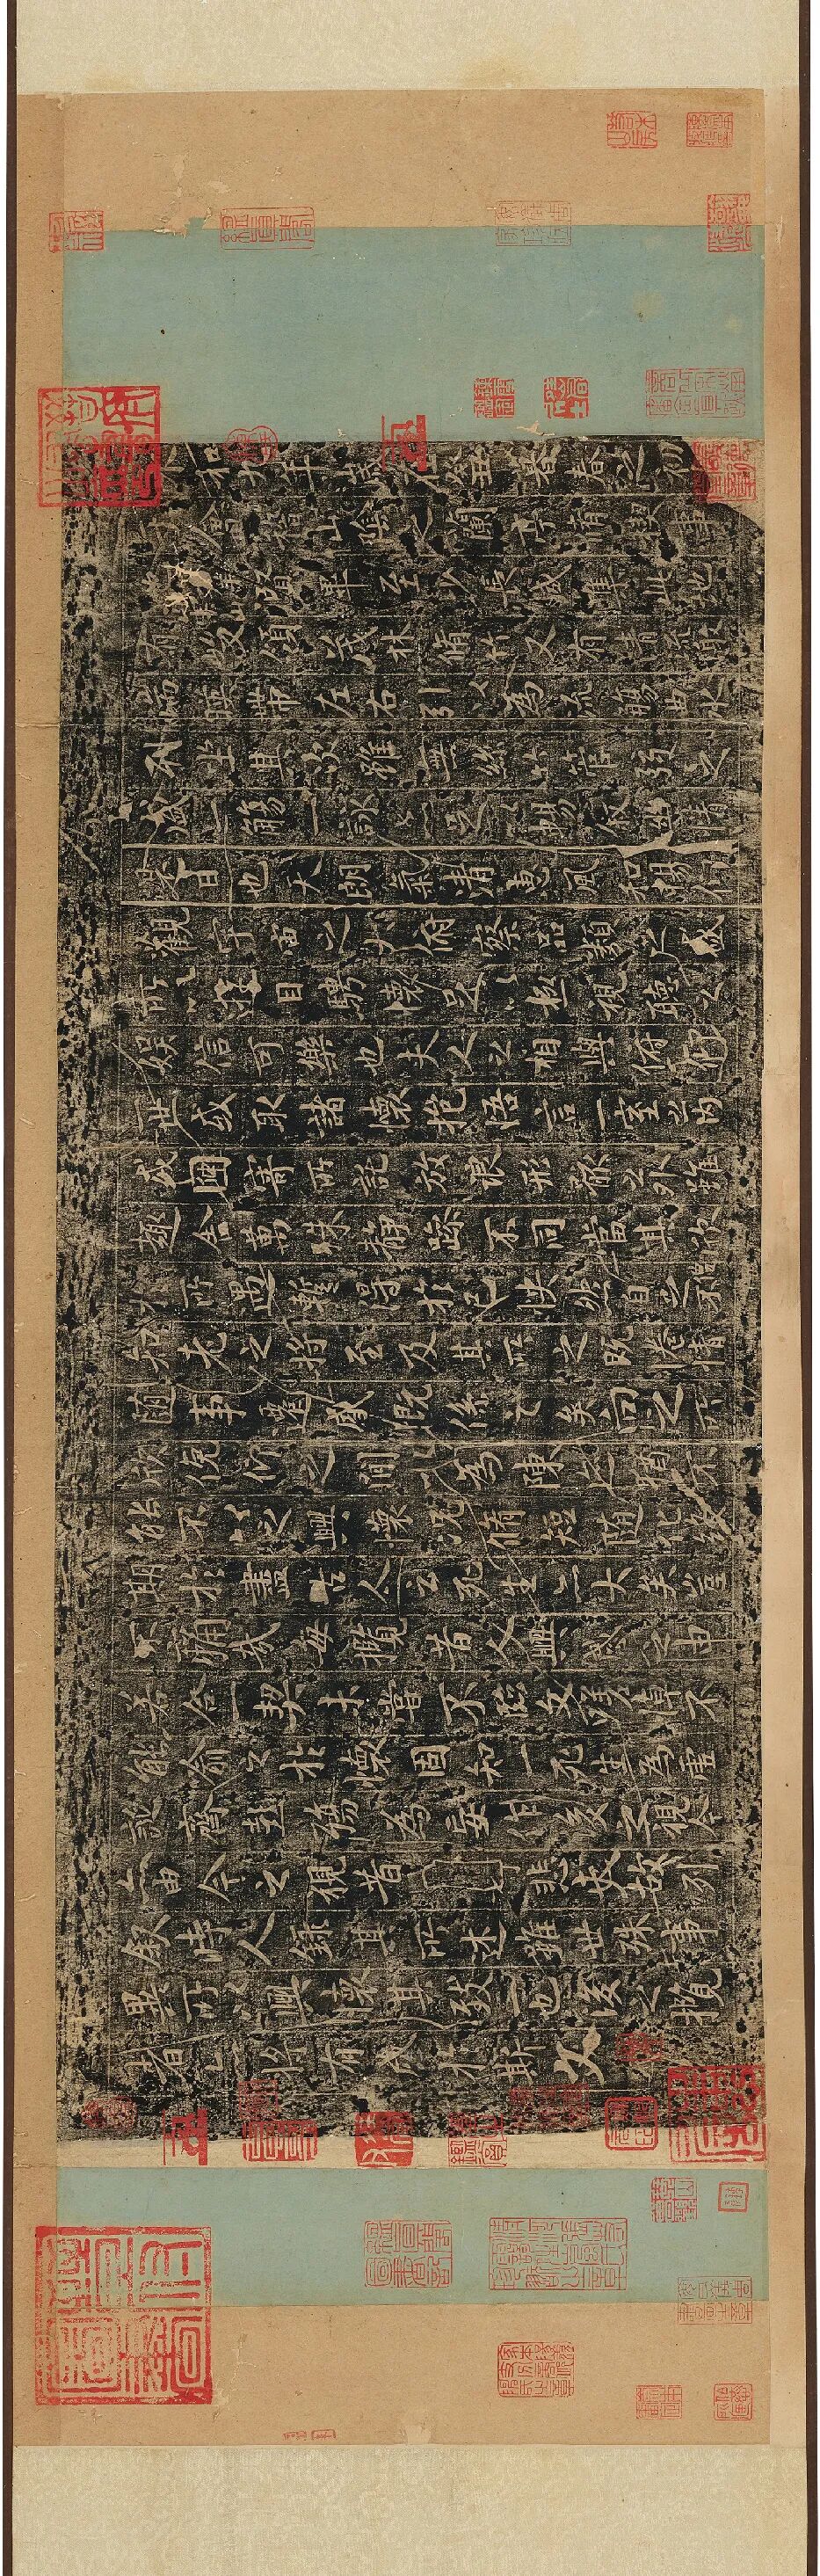 永和九年歲在癸丑暮春之初
于會稽山陰之蘭亭脩禊事
也羣賢畢至少長咸集此地
有峻領茂林脩竹又有清流激
湍暎帶左右引以為流觴曲水
列坐其次雖無絲竹管弦之
盛一觴一詠亦足以暢敘幽情
是日也天朗氣清惠風和暢仰
觀宇宙之大俯察品類之盛
所以遊目騁懷足以極視聽之
娛信可樂也夫人之相與俯仰
一世或取諸懷抱悟言一室之內
或因寄所託放浪形骸之外雖
趣舍萬殊靜躁不同當其欣
於所遇蹔得於己怏然自足不
知老之將至及其所之既惓情
隨事遷感慨係之矣向之所
欣俛仰之閒以為陳迹猶不
能不以之興懷況脩短隨化終
期於盡古人云死生亦大矣豈
不痛哉每攬昔人興感之由
若合一契未嘗不臨文嗟悼不
能喻之於懷固知一死生為虛
誕齊彭殤為妄作後之視今
亦由今之視昔悲夫故列
敘時人錄其所述雖世殊事
異所以興懷其致一也後之攬
者亦將有感於斯文